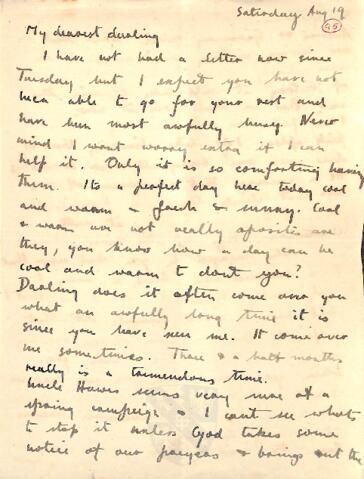 Saturday Aug 19
95
My dearest darling
I have not had a letter now since
Tuesday but I expect you have not
been able to go for your rest and
have been most awfully busy. Never
mind I wont worry extra if I can
help it. Only it is so comforting having
them. Its a perfect day here today cool
and warm & fresh & sunny. Cool
& warm are not really oposites are
they, you know how a day can be
cool and warm to dont you?
Darling does it often come over you
what an awfully long time it is
since you have seen me. It comes over
me sometimes. Three & a half months
really is a tremendous time.
Uncle Hawes seems very sure of a
spring campeign & I cant see whats
to stop it unless God takes some
notice of our prayers & brings out the